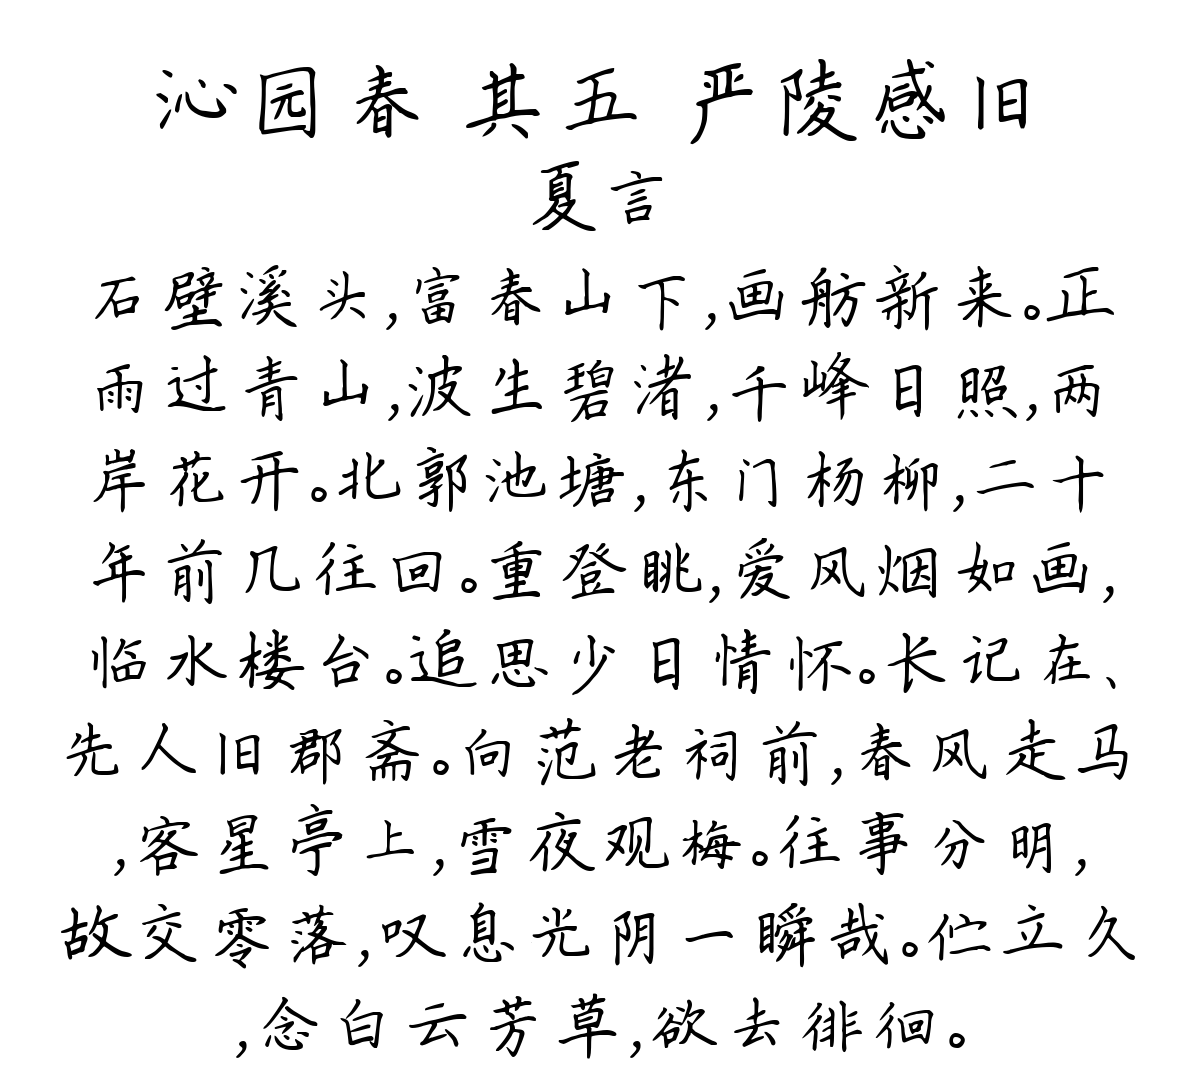 沁园春 其五 严陵感旧
夏言
石壁溪头,富春山下,画舫新来。正
雨过青山,波生碧渚,千峰日照,两
岸花开。北郭池塘,东门杨柳,二十
年前几往回。重登眺,爱风烟如画,
临水楼台。追思少日情怀。长记在、
先人旧郡斋。向范老祠前,春风走马
,客星亭上,雪夜观梅。往事分明,
故交零落,叹息光阴一瞬哉。伫立久
,念白云芳草,欲去徘徊。